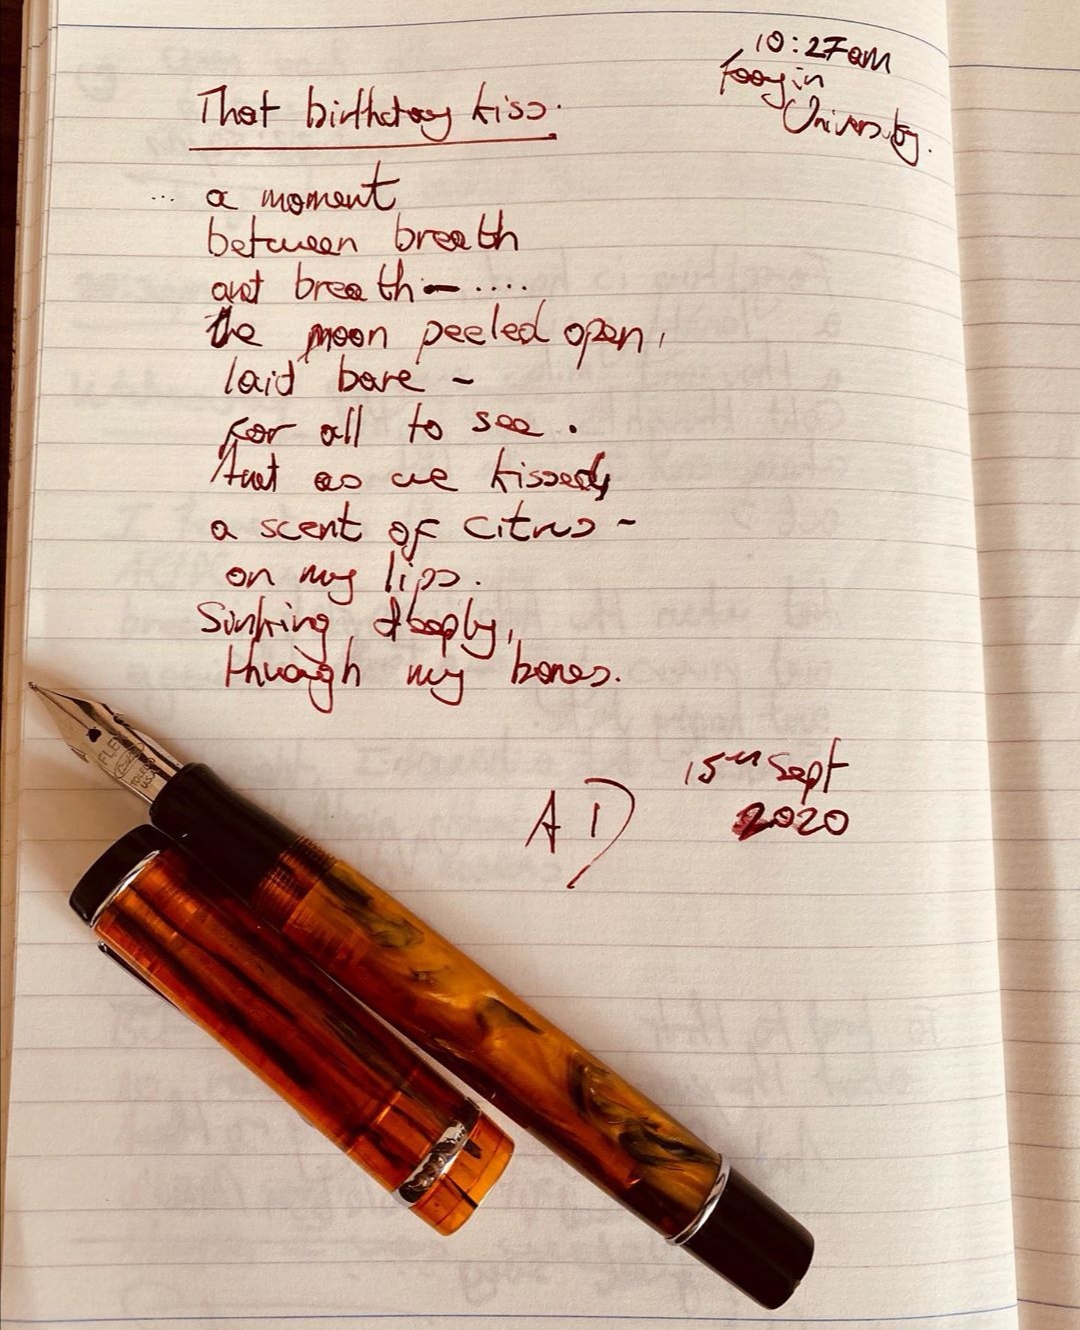 10:27am
Fooyin
University.
That birthday kiss.
... a moment
between breath
and breath-....
the moon peeled open,
laid bare -
For all to see.
And as we kissed,
a scent of citrus -
on my lips.
Sinking deeply,
through my bones.
15th Sept
AD 2020
FLEX
U.S.A